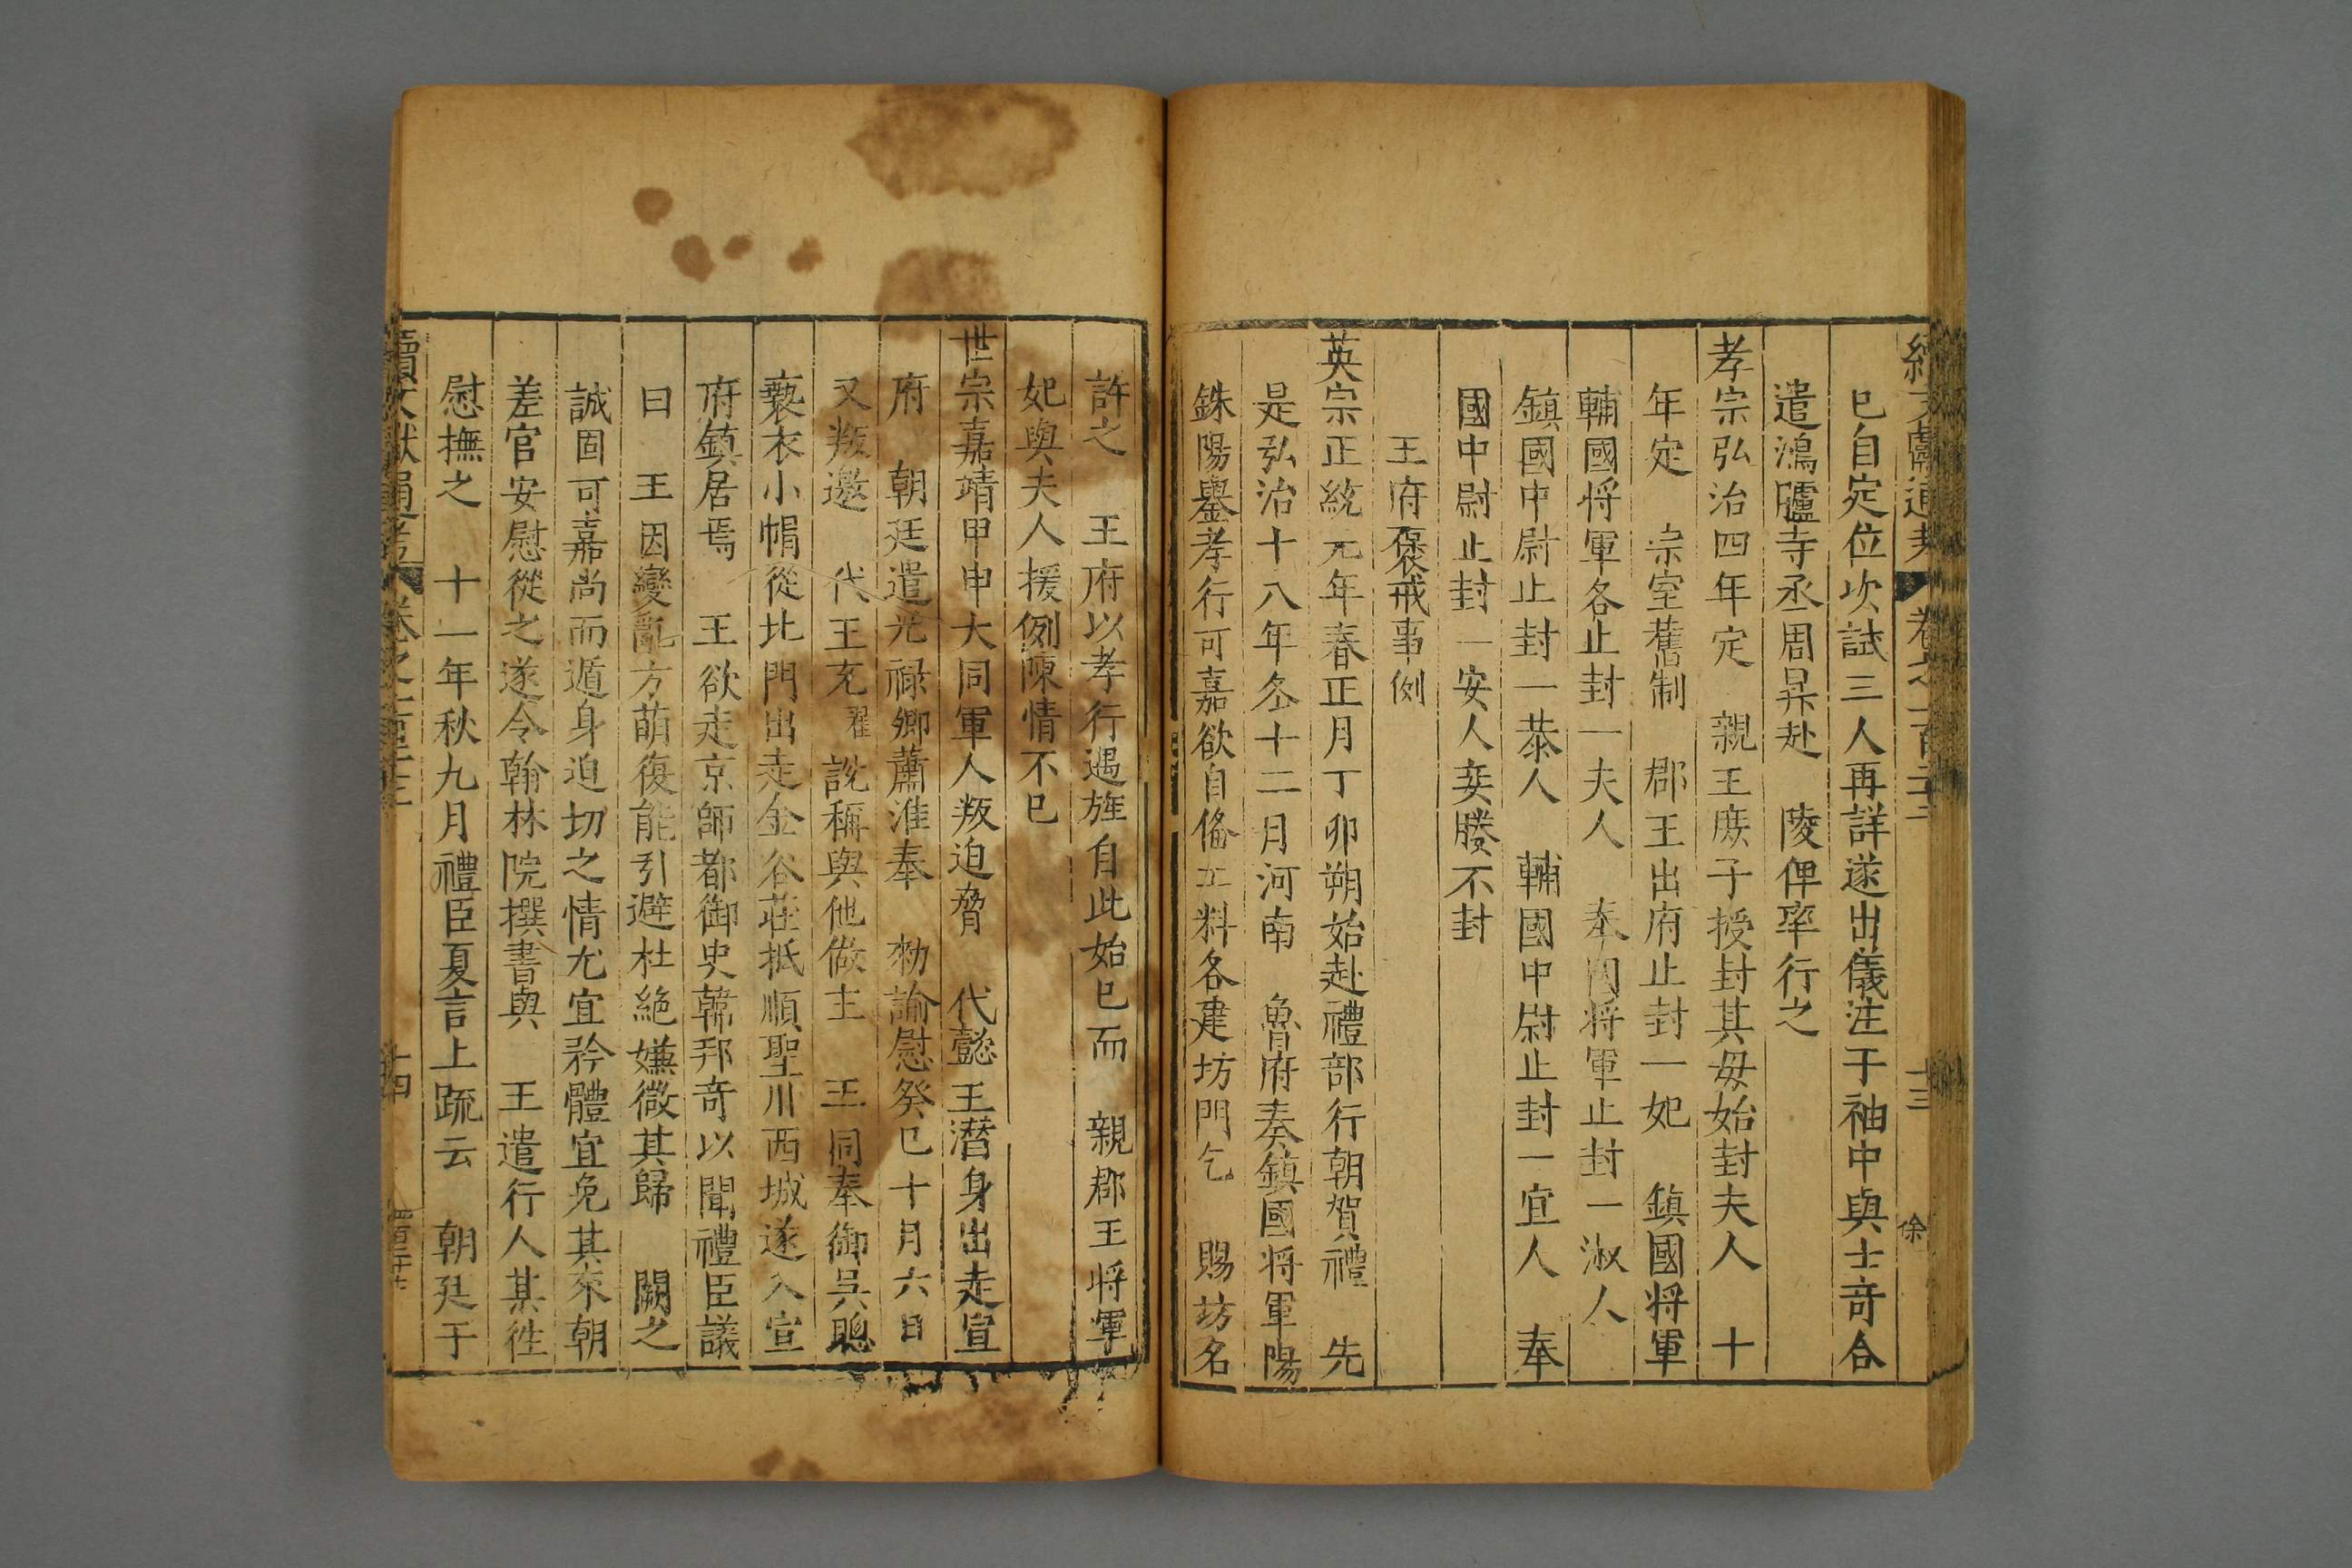 續文獻通考 卷之一百 十三 徐
已自定位次試三人再詳遂出儀注于袖中與士奇合
遣鴻臚寺丞周昇赴 陵俾率行之
孝宗弘治四年定 親王庶子授封其毋始封夫人 十
年定 宗室舊制 郡王出府止封一妃 鎮國将軍
輔國将軍各止封一夫人 奉國将軍止封一淑人
鎮國中尉止封一恭人 輔國中尉止封一宜人 奉
國中尉止封一安人妾媵不封
王府褒戒事例
英宗正統元年春正月丁卯朔始赴禮部行朝賀禮 先
是弘治十八年冬十二月河南 魯府奏鎮國将軍陽
銖陽鑾孝行可嘉欲自俻工料各建坊門乞 賜坊名
許之 王府以孝行遇旌自此始已而 親郡王将軍
妃與夫人援例陳情不已
世宗嘉靖甲申大同軍人叛迫脅 代懿王潛身出走宣
府 朝廷遣光禄卿蕭淮奉 勑諭慰癸巳十月六日
又叛邀 代王充燿說稱與他做主 王同奉御吳聰
褻衣小帽從北門出走金谷莊抵順聖川西城遂入宣
府鎮居焉 王欲走京師都御史韓邦奇以聞禮臣議
曰 王因變亂方萌復能引避杜絶嫌微其歸 闕之
誠固可嘉尚而遁身迫切之情尤宜矜體宜免其來朝
差官安慰從之遂令翰林院撰書與 王遣行人某徃
慰撫之 十一年秋九月禮臣夏言上疏云 朝廷于
續文獻通考 卷之 十四